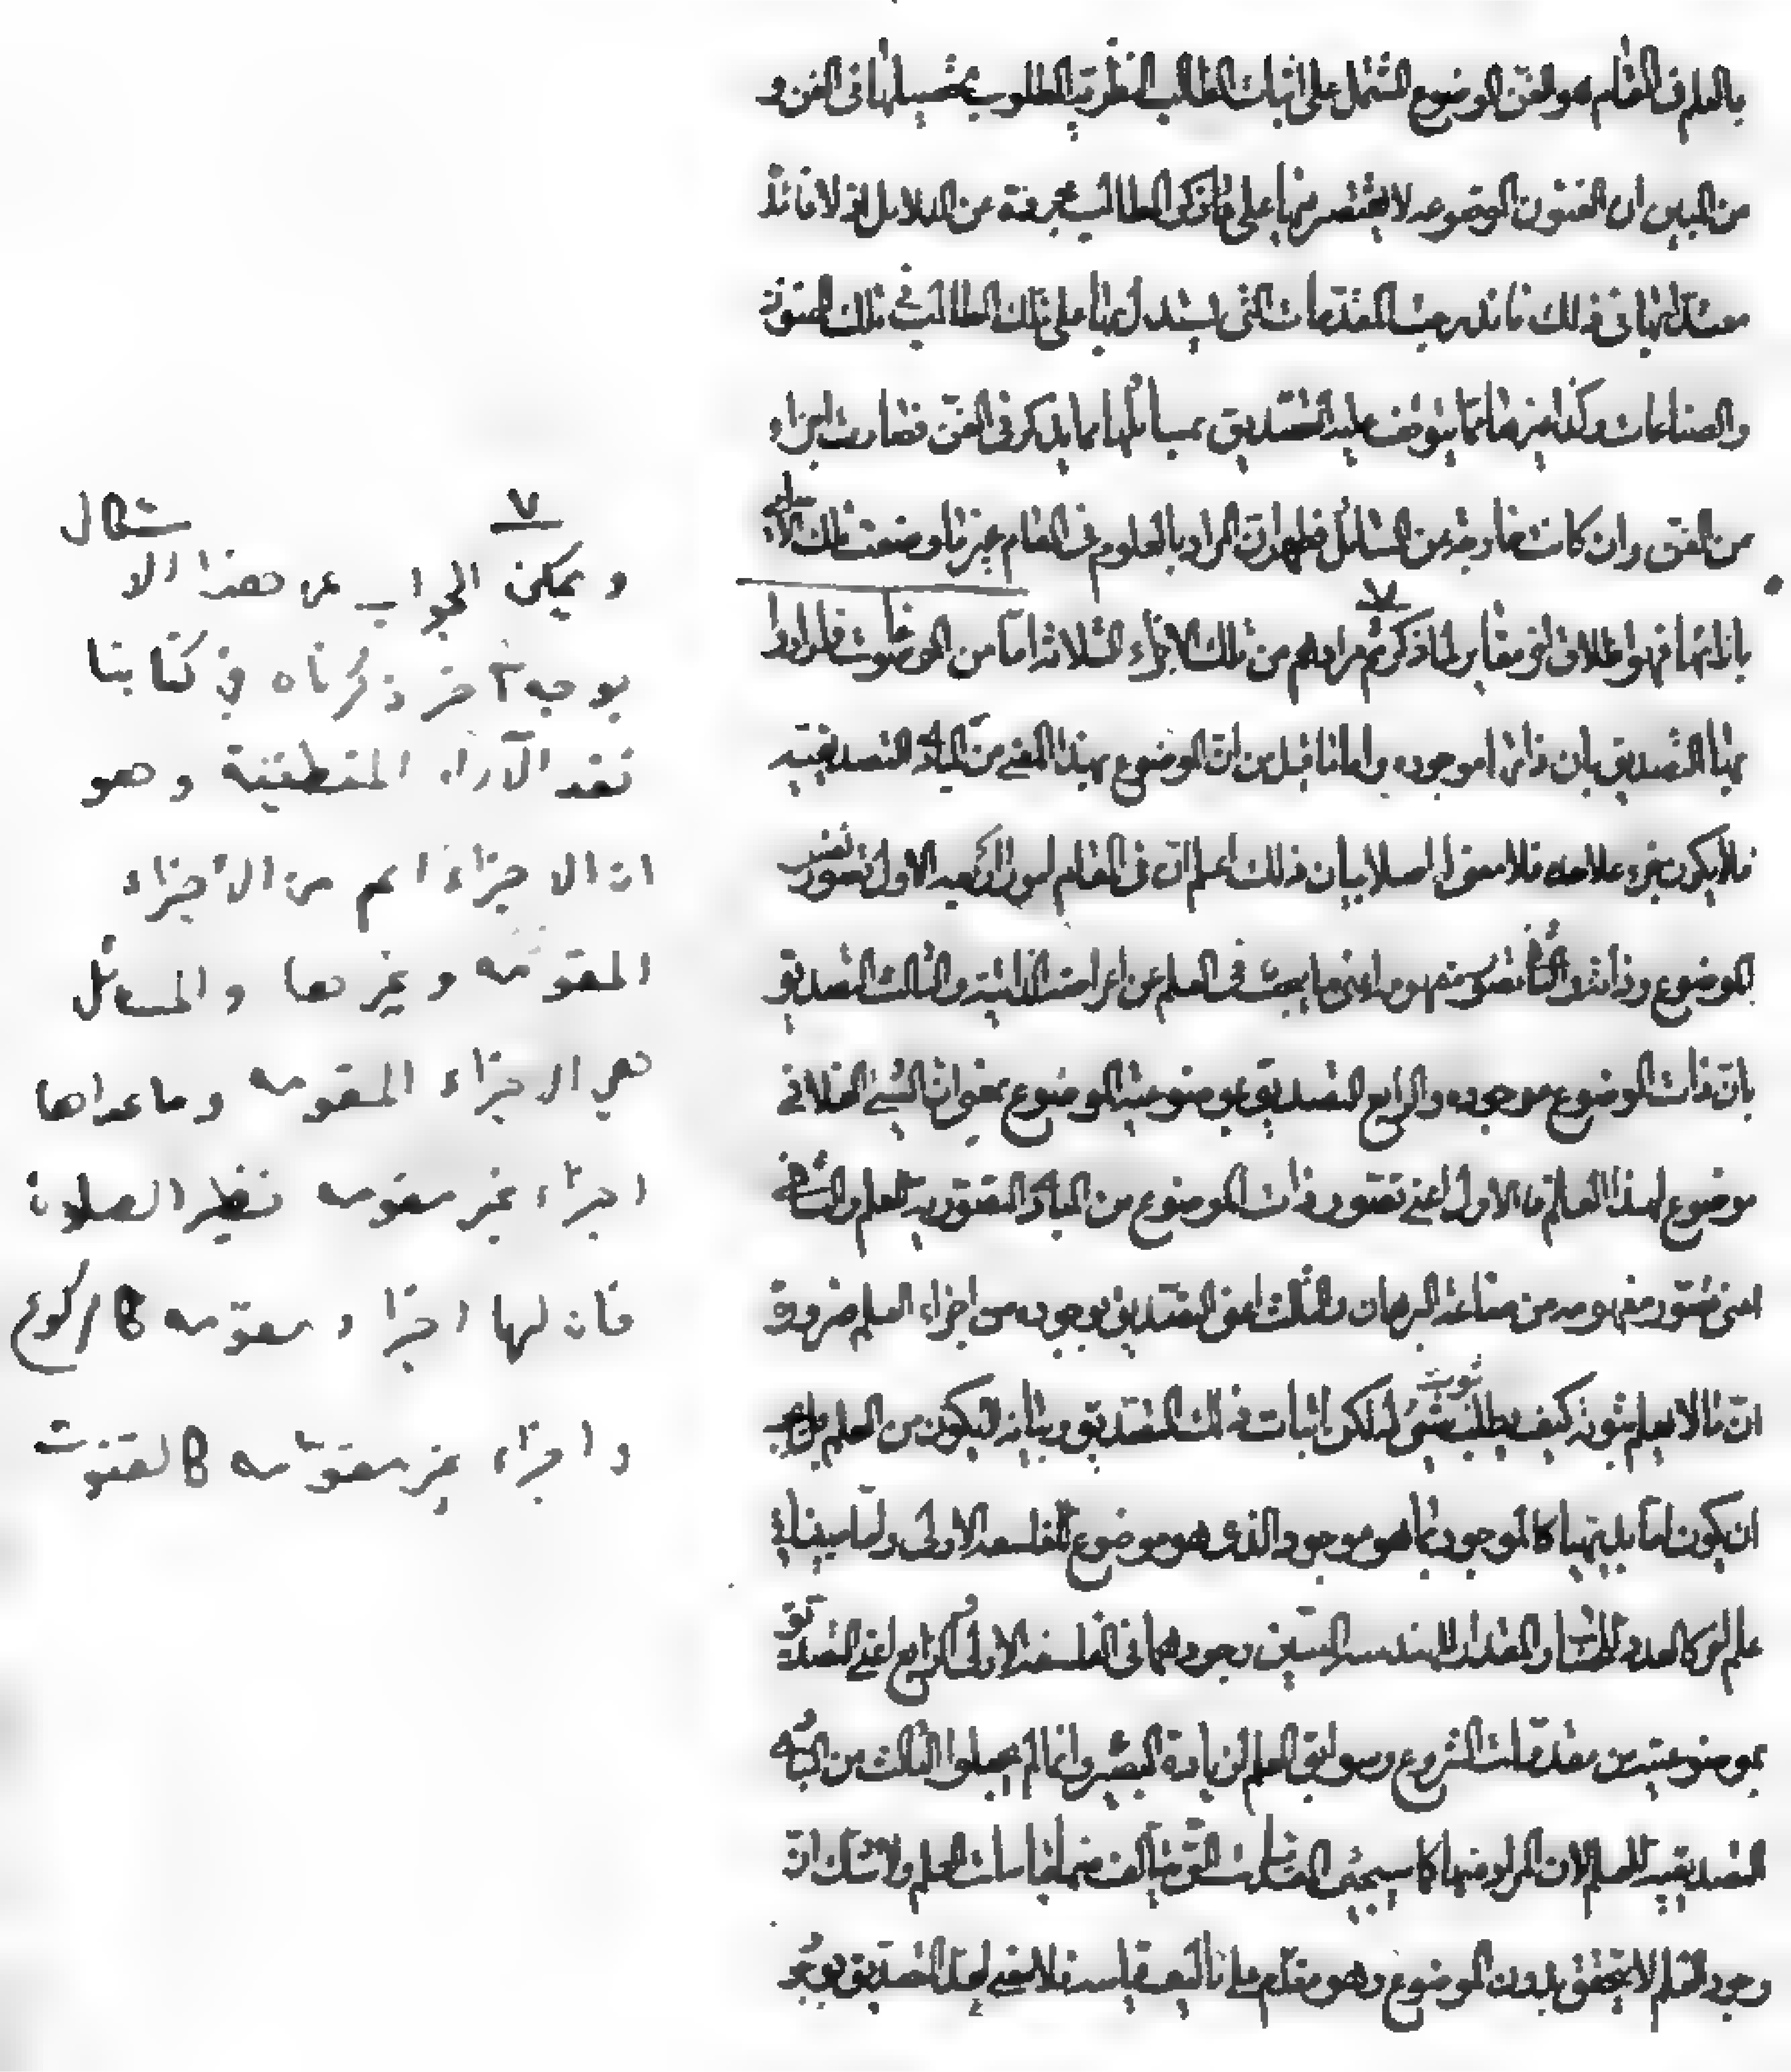 بالعلم في المقام هو الفن الموضوع المشتمل على اثبات المطالب النظرية المطلوب تحصيلها في الفن و
من البين ان الفنون الموضوعة لا يقتصر فيها على ذكر المطالب مجردة عن الدلايل اذ لا فائدة
معتدا بها في ذلك فاندرجت المقدمات التي يستدل بها على تلك المطالب في تلك الفنون
والصناعات وكذا غيرها مما يتوقف عليه التصديق بمسائلها مما يذكر في الفن فصارت اجزاء
من الفن وان كانت خارجة عن المسائل فظهر ان المراد بالعلوم في المقام غير ما وضعت تلك الاسامي
بازائها فهو اطلاق اخر مغاير لما ذكر ثم مرادهم من تلك الاجزاء الثلاثة اما من الموضوعات فالمراد
بها التصديق بان ذاتها موجودة واما ما قيل من ان الموضوع بهذا المعنى من المبادي التصديقية
فلا يكون جزء علاحده فلا معنى له اصلا بيان ذلك اعلم ان في المقام امورا اربعة الاول تصور نفس
الموضوع وذاته والثاني تصور مفهومه اعني ما يبحث في العلم عن اعراضه الذاتية والثالث التصديق
بان ذات الموضوع موجودة والرابع التصديق بموضوعية الموضوع بمعنى ان الشيء الفلاني
موضوع لهذا العلم فالاول اعني تصور ذات الموضوع من المبادي التصورية للعلم والثاني
اعني تصور مفهومه من صناعة البرهان والثالث اعني التصديق بوجوده من اجزاء العلم ضرورة
ان ما لا يعلم ثبوته كيف يطلب ثبوت شيء له لكن اثبات ذلك التصديق وبيانه ليكون من العلم يجب
ان يكون اما بديهيا كالموجود بما هو موجود الذي هو موضوع للفلسفة الاولى واما مبينا في
علم اخر كالعدد للحساب والمقدار للهندسة المبين وجودهما في الفلسفة الاولى والرابع اعني التصديق
بموضوعيته من مقدمات الشروع وسوابق العلم لزيادة البصيرة وانما لم يجعلوا الثالث من المبادي
التصديقية للعلم لان المراد منها كما سيجيء المقدمات التي يتألف منها قياسات العلم ولا شك ان
وجود العلم لا يتحقق بدون الموضوع وهو مقدم على تأليف قياسه فلا معنى لعد التصديق بوجود
٧
ويمكن الجواب عن هذا الا شكال
بوجه آخر ذكرناه في كتابنا
نقد الآراء المنطقية وهو
ان الاجزاء اعم من الأجزاء
المقومه وغيرها والمسائل
هي الاجزاء المقومه وماعداها
اجزاء غير مقومه نظير الصلاة
فان لها اجزاء مقومه كالركوع
واجزاء غير مقومه كالقنوت